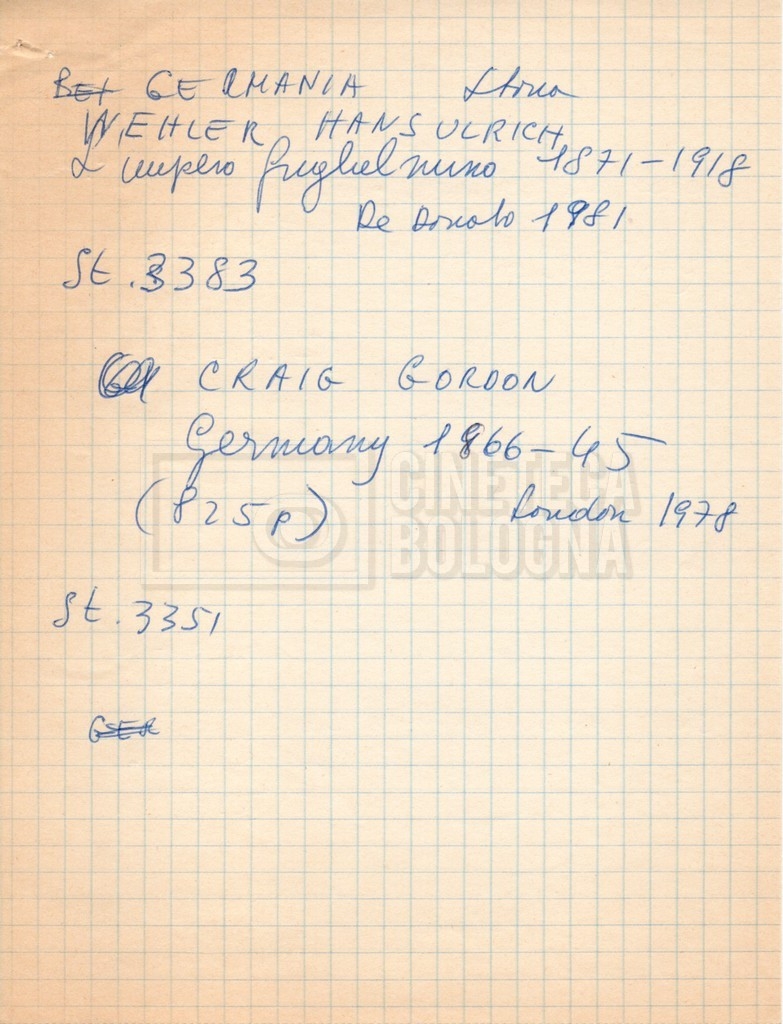 GERMANIA Storia
WEHLER HANS ULRICH
L'impero guglielmino 1871-1918
De Donato 1981
St. 3383
CRAIG GORDON
Germany 1866-45
(825p) London 1978
CINETECA
BOLOGNA
St. 3351